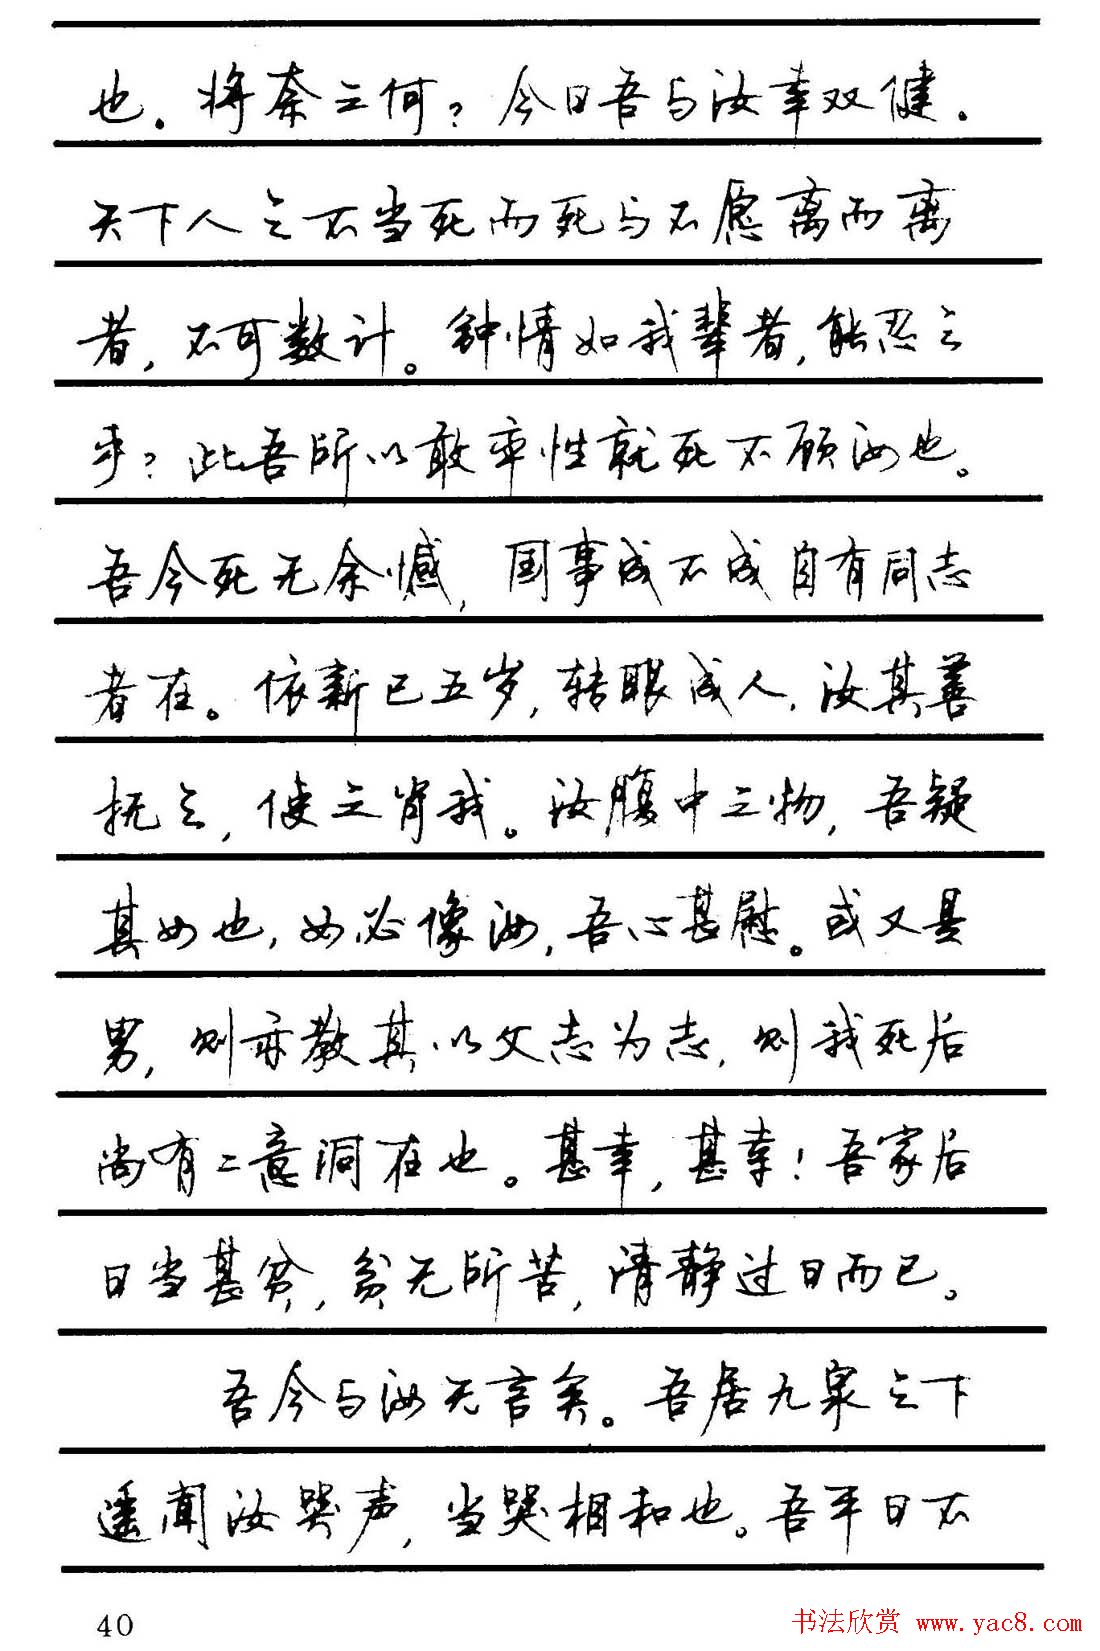 也。将奈之何？今日吾与汝幸双健。
天下人之不当死而死与不愿离而离
者，不可数计。钟情如我辈者，能忍之
乎？此吾所以敢率性就死不顾汝也。
吾今死无余憾，国事成不成自有同志
者在。依新已五岁，转眼成人，汝其善
抚之，使之肖我。汝腹中之物，吾疑
其女也，女必像汝，吾心甚慰。或又是
男，则亦教其以父志为志，则我死后
尚有二意洞在也。甚幸，甚幸！吾家后
日当甚贫，贫无所苦，清静过日而已。
吾今与汝无言矣。吾居九泉之下
遥闻汝哭声，当哭相和也。吾平日不
40
书法欣赏 www.yac8.com